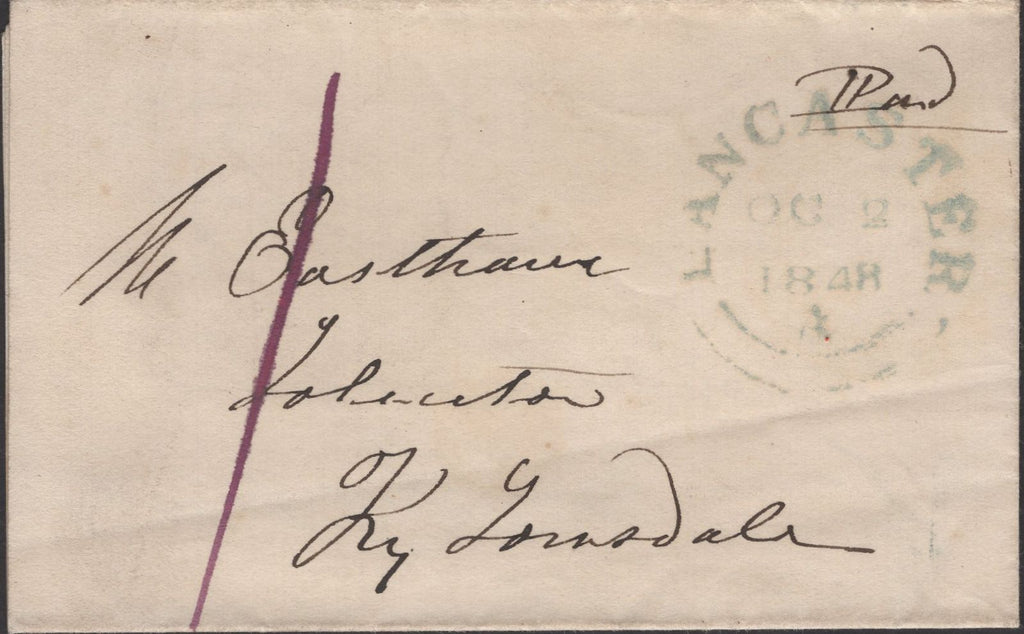 Paid
LANCASTER.
OC 2
1848
A
Mr Easthaw
Solicitor
Ky Lonsdale